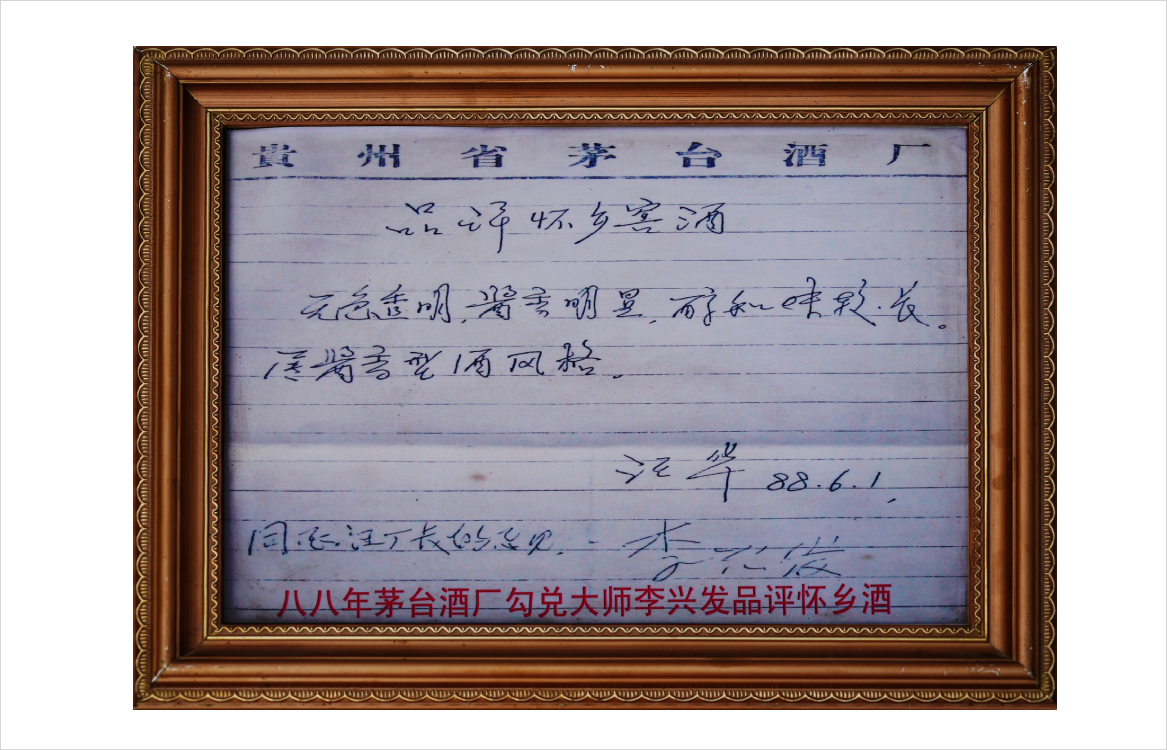 貴州省茅台酒厂
品评怀乡窖酒
无色透明，酱香明显，醇和味较长。
属酱香型酒风格。
汪华 88.6.1.
同意汪厂长的意见. 李兴发
八八年茅台酒厂勾兑大师李兴发品评怀乡酒